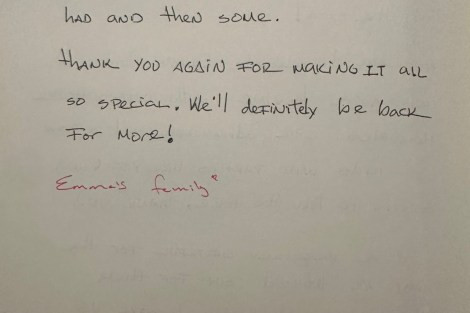 had and then some.
Thank you again for making it all
so special. We'll definitely be back
for more!
Emma's family